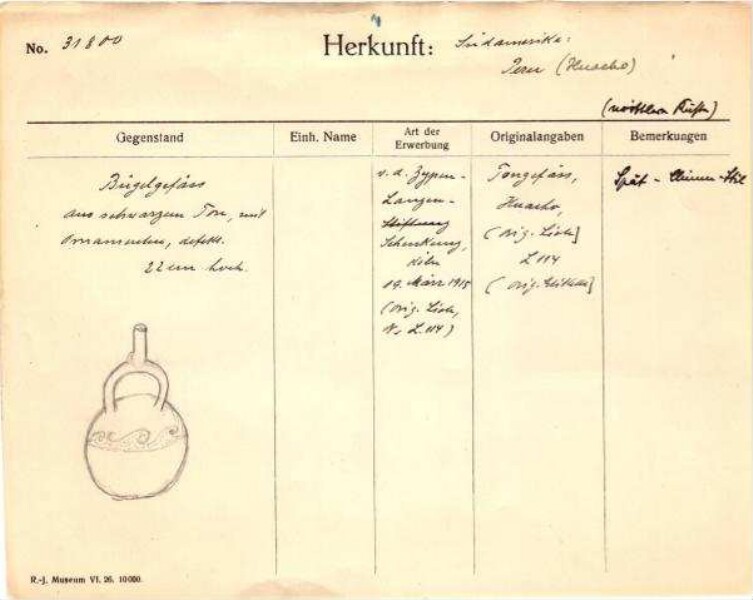 No. 31800
Herkunft: Südamerika:
Peru (Huacho)
(nördliche Küste)
Gegenstand
Einh. Name
Art der
Erwerbung
Originalangaben
Bemerkungen
Bügelgefäss
aus schwarzem Ton, mit
Ornamenten, defekt.
22 cm hoch.
v. d. Zypen-
Langen-
Stiftung
Schenkung,
Köln
19. März 1915
(orig. Liste,
No L. 114)
Tongefäss,
Huacho,
(orig. Liste]
L 114
(orig. Etikette]
Spät-Chimu-Stil
R.-J. Museum VI. 26. 10000.